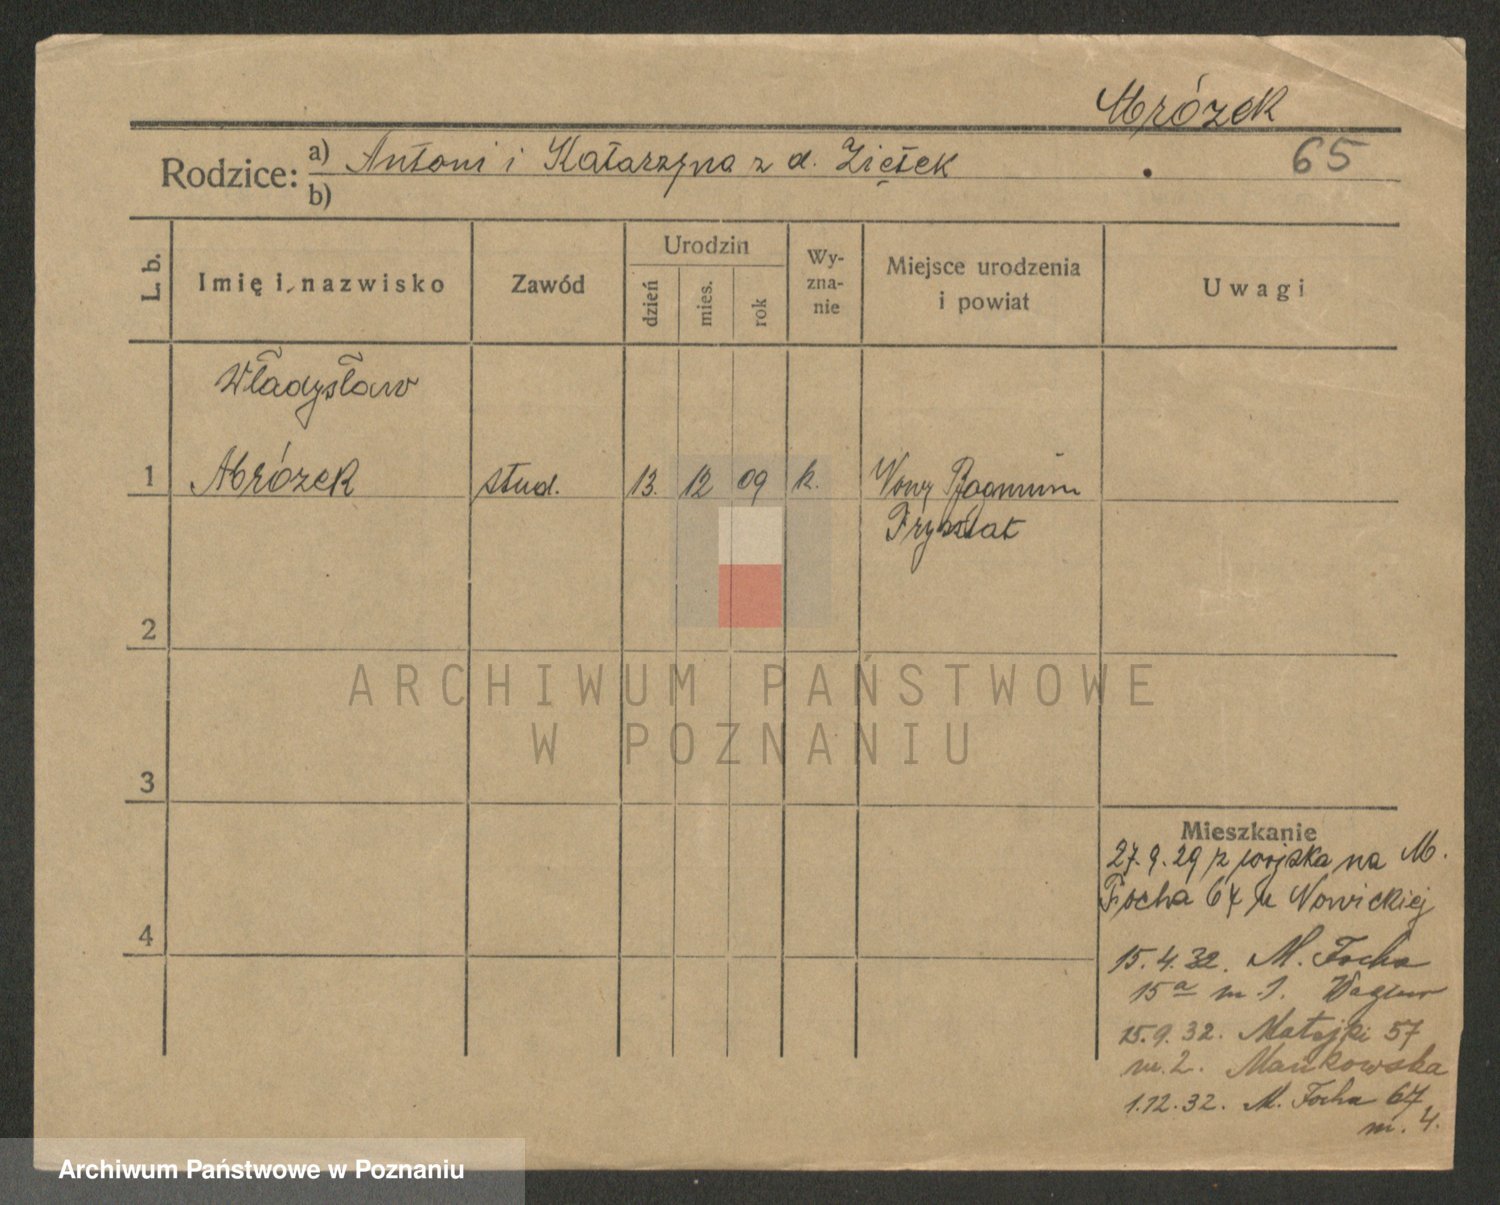 Mrózek
Rodzice: a) Antoni i Katarzyna z d. Ziętek 65
b)
L. b.
Imię i nazwisko
Zawód
Urodzin
dzień
mies.
rok
Wy-
zna-
nie
Miejsce urodzenia
i powiat
Uwagi
Władysław
1 Mrózek stud. 13. 12 09 k. Nowy Bogumin
Frysztat
2
ARCHIWUM PAŃSTWOWE
W POZNANIU
3
Mieszkanie
27.9.29 z wojska na M.
Focha 64 u Nowickiej
4
15.4.32. M. Focha
15a m. 1. Wagner
15.9.32. Matejki 57
m. 2. Mańkowska
1.12.32. M. Focha 67
m. 4.
Archiwum Państwowe w Poznaniu